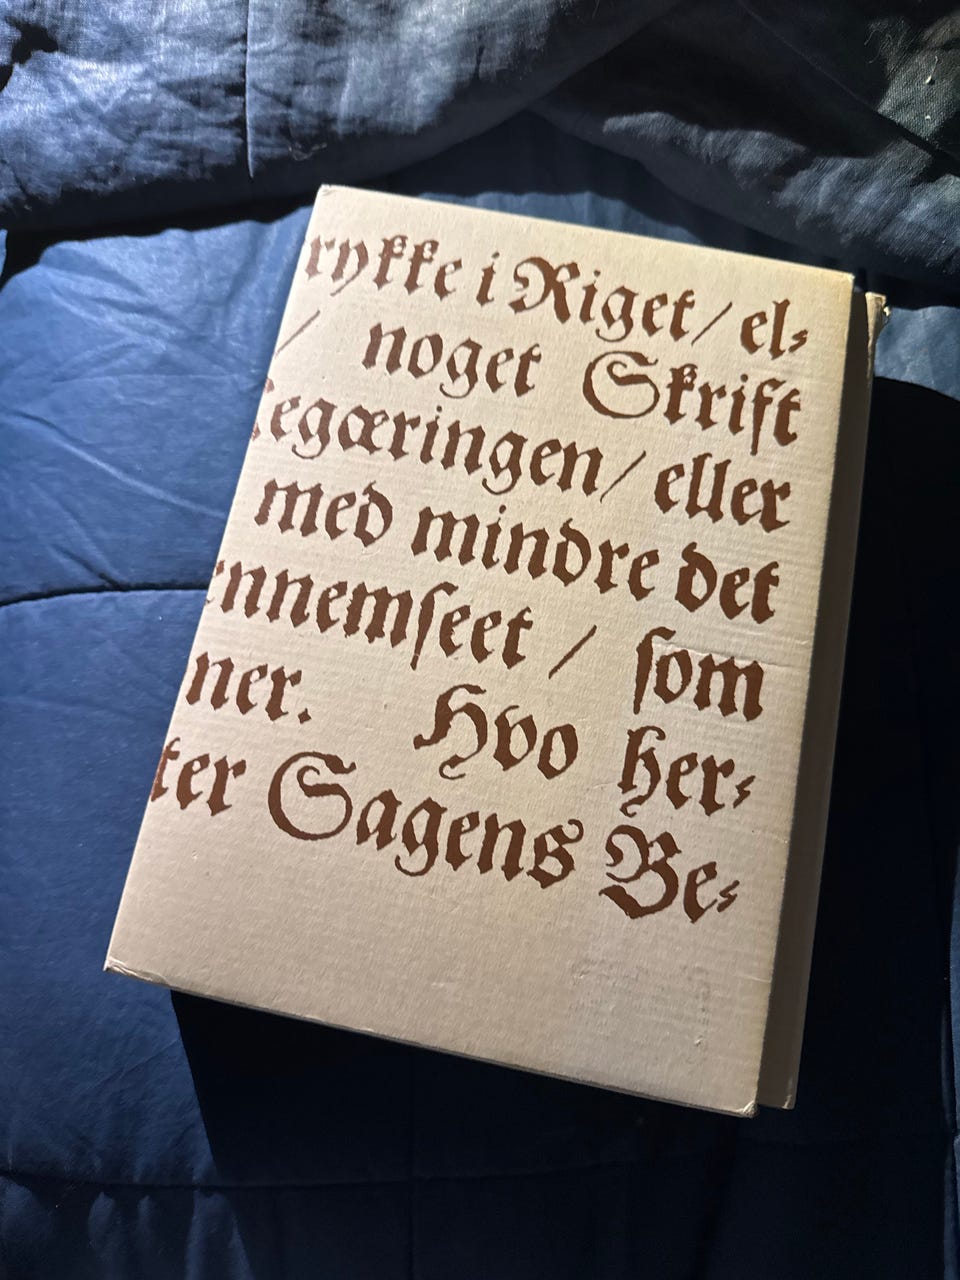 rykke i Riget / el⸗
/ noget Skrift
egæringen / eller
med mindre det
nnemſeet / ſom
ner. Hvo her⸗
ter Sagens Be⸗